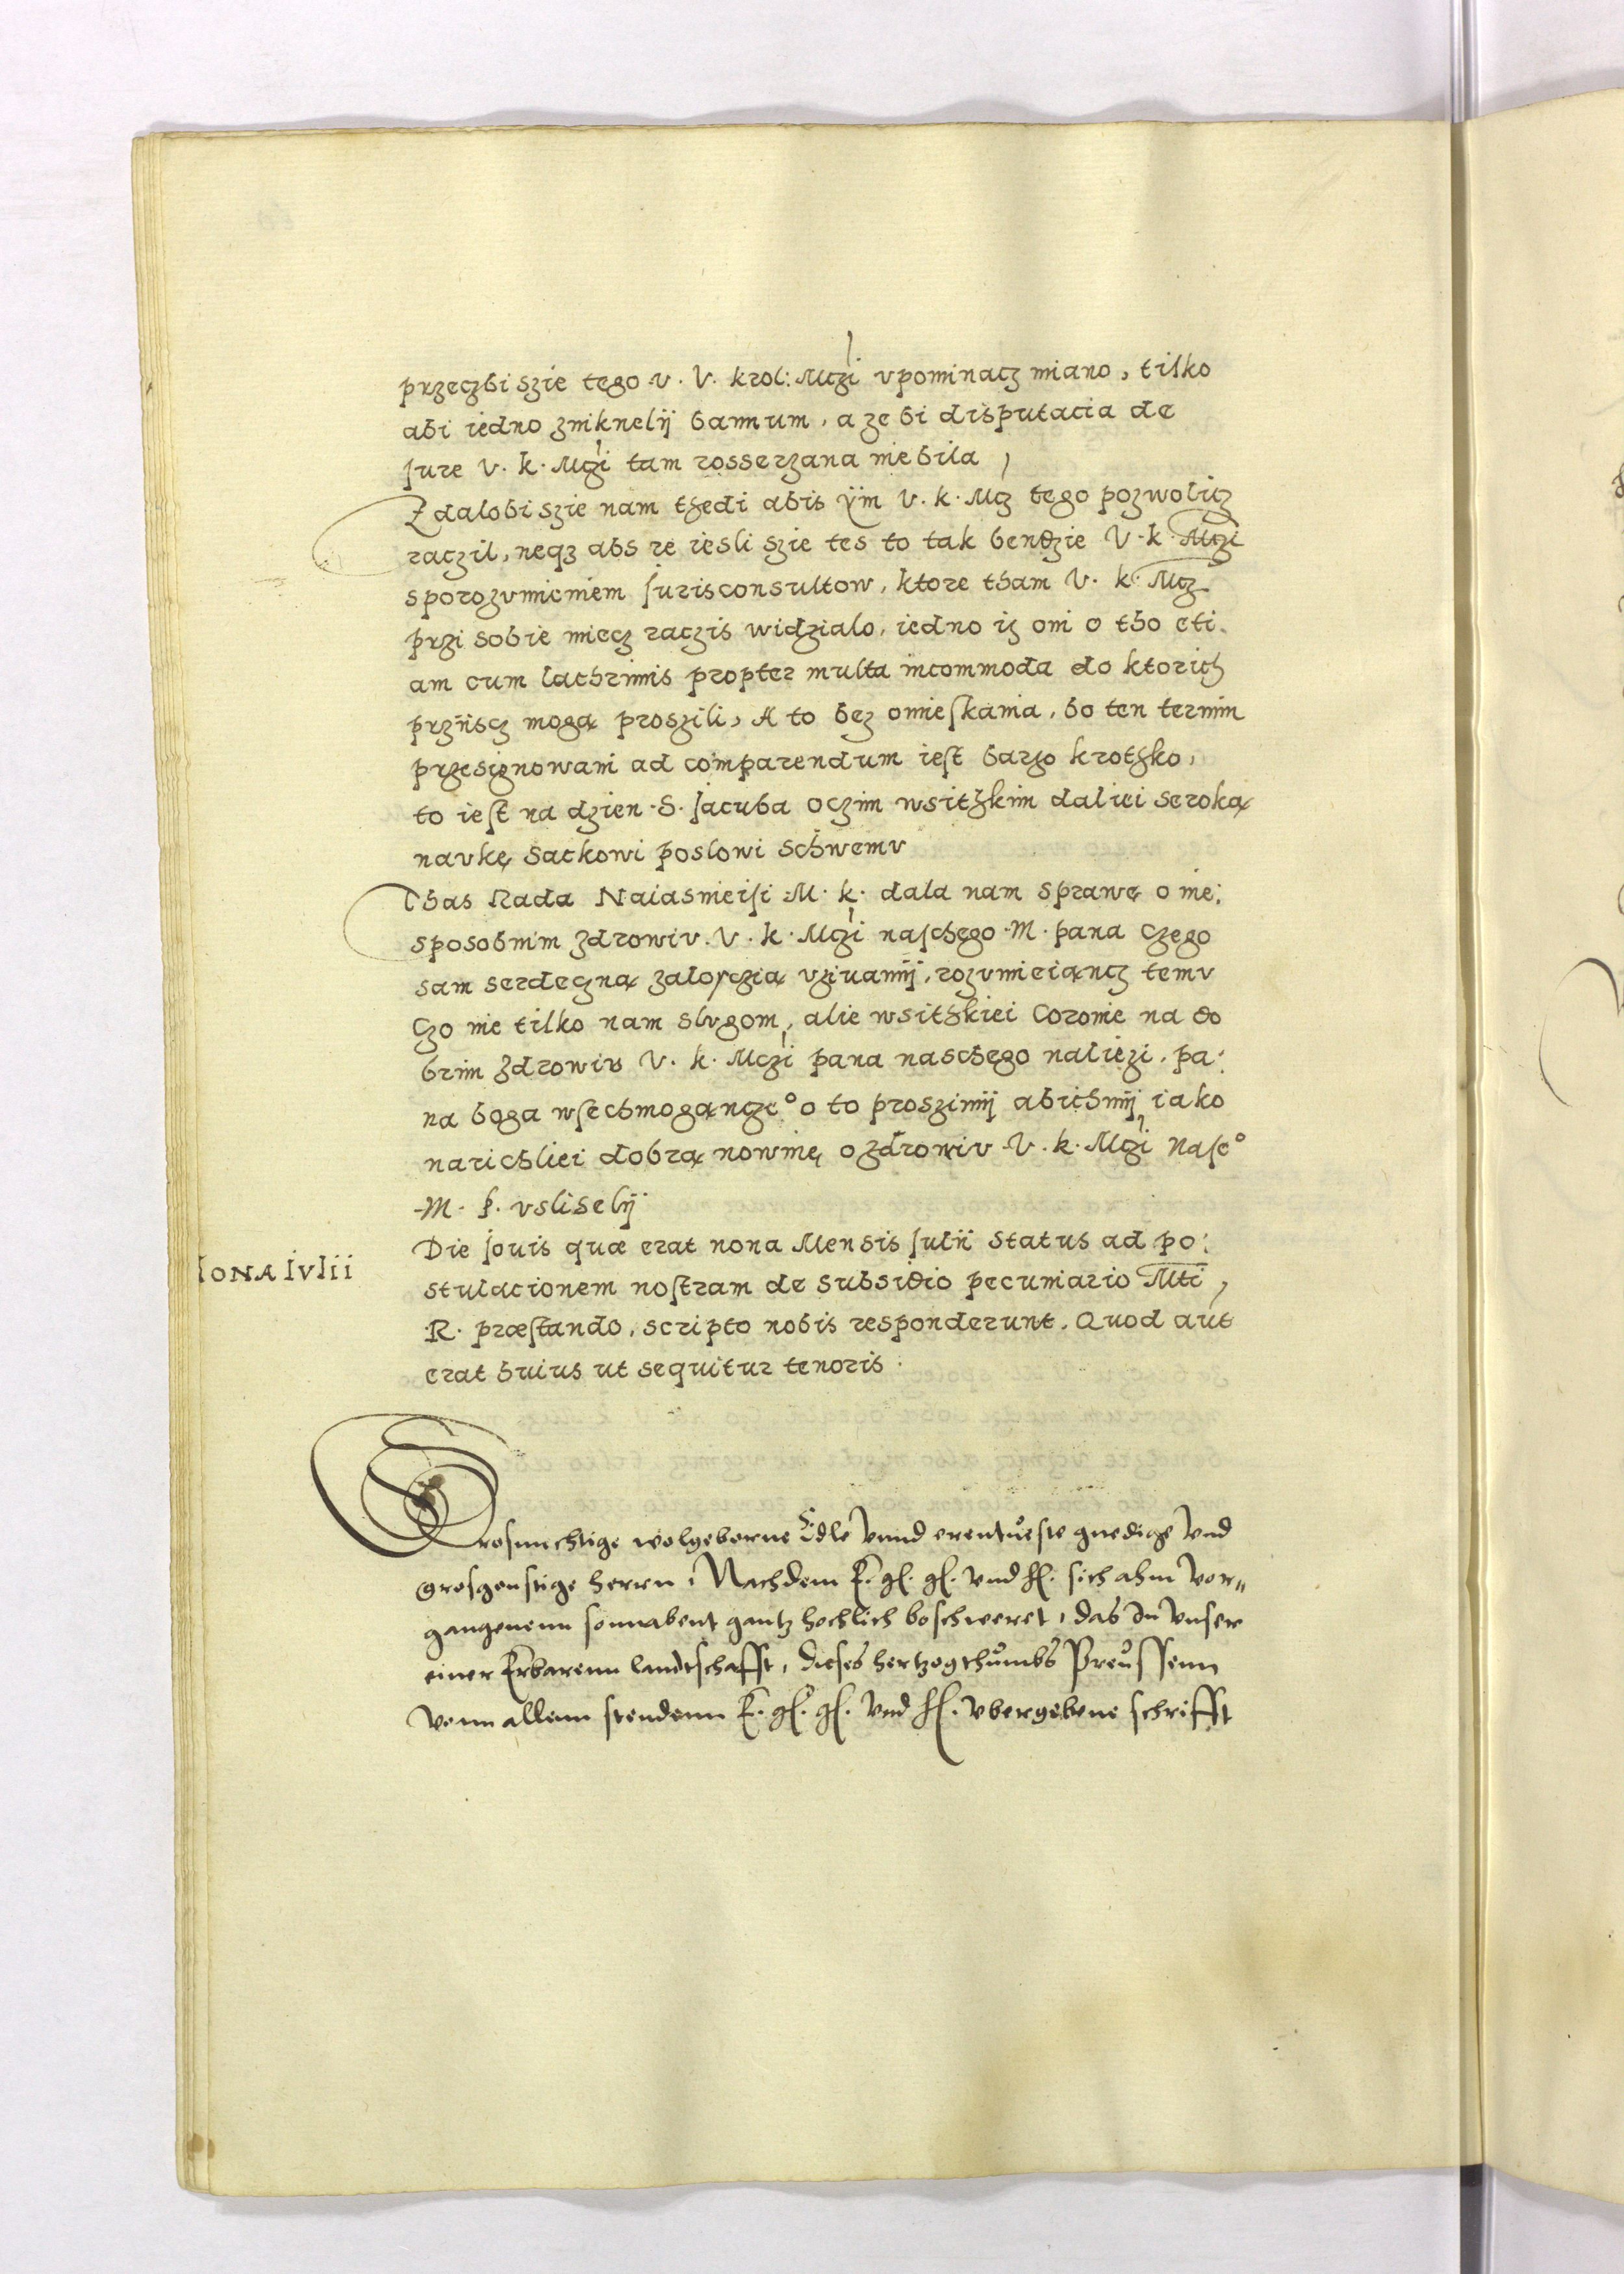 przeczbi szie tego v. V. krol: Mczi vpominacz miano, tilko
abi iedno zniknelij bannum, a ze bi disputacia de
Jure V. k. Mczi tam rosserzana nie bila,
Zdalobi szie nam thedi abis ÿm V. k. Mcz tego pozwolicz
raczil, neqz abs re iesli szie tes to tak bendzie V. k. Mczi
s porozvmieniem Jurisconsultow, ktore tham V. k. Mcz
przi sobie miecz raczis widzialo, iedno iz oni o tho eti.
am cum lachrimis propter multa incommoda do ktorich
przÿscz mogą proszili, A to bez omieskania, bo ten termin
przesignowani ad comparendum iest barzo krothko,
to iest na dzien S. Jacuba oczim wsithkim daliei seroką
naukę Sackowi poslowi Schwemv
Thas Rada Naiasnieisi M. k. dala nam sprawę o nie:
sposobnim zdrowiv. V. k. Mczi naschego M. pana czego
sam serdeczną zalosczią vzivamij, rozvmieiąncz temv
Czo nie tilko nam slvgom, alie wsithkiei Coronie na do
brim zdrowiv V. k. Mczi pana naschego naliezi. pa:
na boga wsechmogąncze° o to proszimij abichmij iako
narichliei dobrą nowinę o zdrowiv V. k. Mczi Nase°
M. p. vsliselij
Die Jouis quæ erat nona Mensis Julii Status ad po:
IONA IVlii
stulacionem nostram de subsidio pecuniario Mti,
R. præstando, scripto nobis responderunt. Quod aut
erat huius ut sequitur tenoris.
Grosmechtige wolgeborne Edle Vnnd erentueste gnedige Vnd
grosgenstige herrn, Nachdem E. gl. gl. vnd hl. sich ahm Vor„
gangenenn sonnabent gantz hochlich beschweret, das In Vnser
einer Erbarenn landtschafft, dieses hertzogthumbs Preussenn
Vonn allenn stendenn E. gl. gl. Vnd hl. vbergebene schrifft